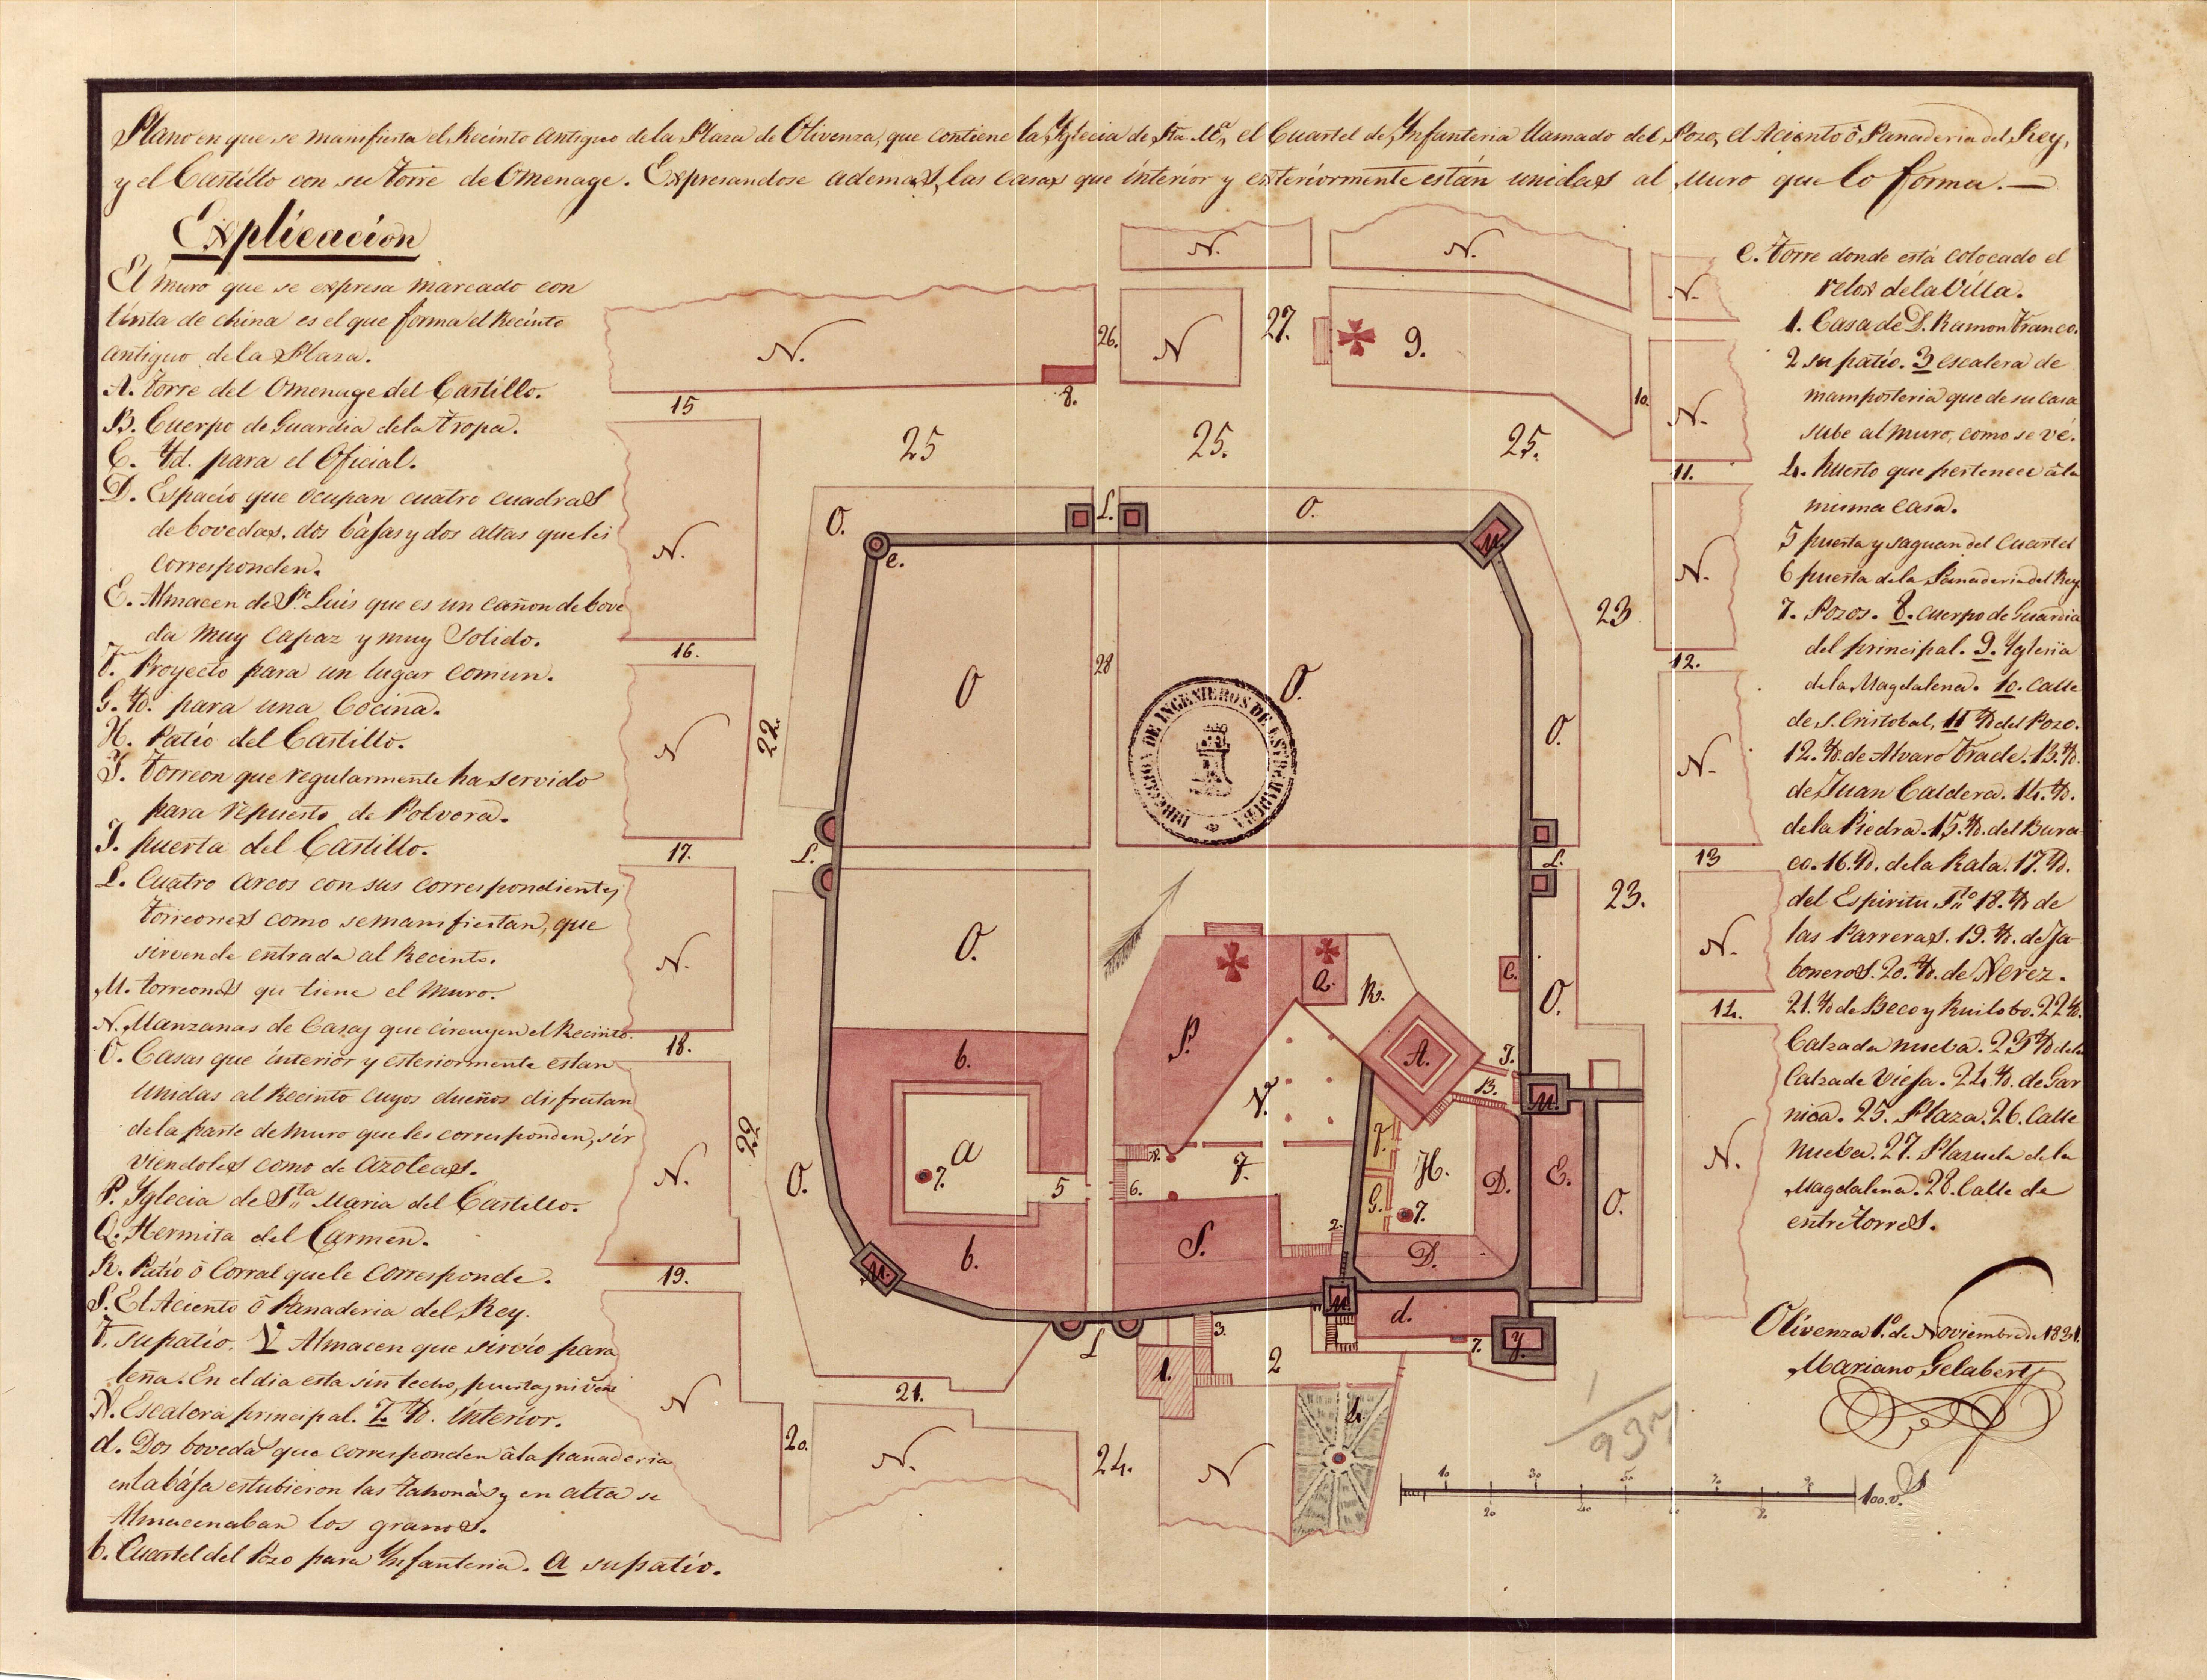 Plano en que se manifiesta el Recinto antiguo de la Plaza de Olivenza, que contiene la Yglecia de Sta. Ma, el Cuartel de Ynfanteria llamado del Pozo, el Aciento ô Panaderia del Rey,
y el Castillo con su torre de Omenage. Expresandose ademas, las casas que interior y exteriormente están unidas al Muro que lo forma.—
Explicacion
El muro que se expresa marcado con
tinta de china es el que forma el Recinto
antiguo de la Plaza.
A. torre del Omenage del Castillo.
B. Cuerpo de Guardia de la tropa.
C. Yd. para el Oficial.
D. Espacio que ocupan cuatro cuadras
de bovedas, dos bajas y dos altas que les
corresponden.
E. Almacen de Sn. Luis que es un cañon de bove
da muy capaz y muy Solido.
F. Proyecto para un lugar comun.
G. Yd. para una Cocina.
H. Patio del Castillo.
Y. torreon que regularmente ha servido
para repuesto de Polvora.
J. puerta del Castillo.
L. Cuatro arcos con sus correspondientes
torreones como se manifiestan, que
sirven de entrada al Recinto.
M. torreones qu tiene el Muro.
N. Manzanas de Casas que circuyen el Recinto.
O. Casas que interior y esteriormente estan
unidas al Recinto cuyos dueños disfrutan
de la parte de muro que les corresponden, sir
viendoles como de azoteas.
P. Yglecia de Sta Maria del Castillo.
Q. Hermita del Carmen.
R. Patio ô Corral que le corresponde.
S. El Aciento ô Panaderia del Rey.
T. su patio. V Almacen que sirvio para
leña. En el dia esta sin techo, puertas ni
N. Escalera principal. Z. Yd. interior.
d. Dos bovedas que corresponden â la panaderia
en la bája estubieron las tahonas y en alta se
Almacenaban los granos.
b. Cuartel del Pozo para Ynfanteria. a su patio.
e. torre donde está colocado el
relox de la Villa.
1. Casa de D. Ramon Franco.
2 su patio. 3 escalera de
mamposteria que de su casa
sube al muro, como se vé.
4. huerto que pertenece â la
misma casa.
5 puerta y saguan del Cuartel
6 puerta de la Panaderia del Rey
7. Pozos. 8. cuerpo de Guardia
del principal. 9. Yglesia
de la Magdalena. 10. Calle
de S. Cristobal, 11 Yd del Pozo.
12. Yd. de Alvaro Frade. 13. Yd.
de Juan Caldera. 14. Yd.
de la Piedra. 15. Yd. del Bura
co. 16. Yd. de la Rala. 17. Yd.
del Espiritu Sto 18. Yd de
las Parreras. 19. Yd. de Ja-
boneros. 20. Yd. de Nerez.
21. Yd de Beco y Ruilobo. 22 Yd.
Calzada nueba. 23 Yd de la
Calzada Vieja. 24. Yd. de Gar
nica. 25. Plaza. 26. Calle
nueba. 27. Plazuela de la
Magdalena. 28. Calle de
entre torres.
Olivenza 1º. de Noviembre de 1831.
Mariano Gelabert
N.
N.
N.
N.
N
26.
27.
9.
15
8.
10.
N.
25
25.
25.
11.
O.
L.
O.
M.
e.
N.
N.
23
16.
28
12.
O
O.
DIRECCION DE INGENIEROS DE ESTREMADURA
O.
22.
N
N.
17.
L.
L.
13
23.
O.
N.
N.
P.
Q.
R.
C.
O.
14.
18.
b.
A.
J.
B.
M.
V.
a
7.
5
6.
T.
F.
H.
D.
E.
G.
7.
O.
N.
22
O.
N.
b.
S.
2.
D.
19.
M.
M.
d.
3.
7.
Y.
L
1.
2
21.
4.
N
20.
N.
24.
N
1/93
10 30 50 70 90
20 40 60 80
100. vs